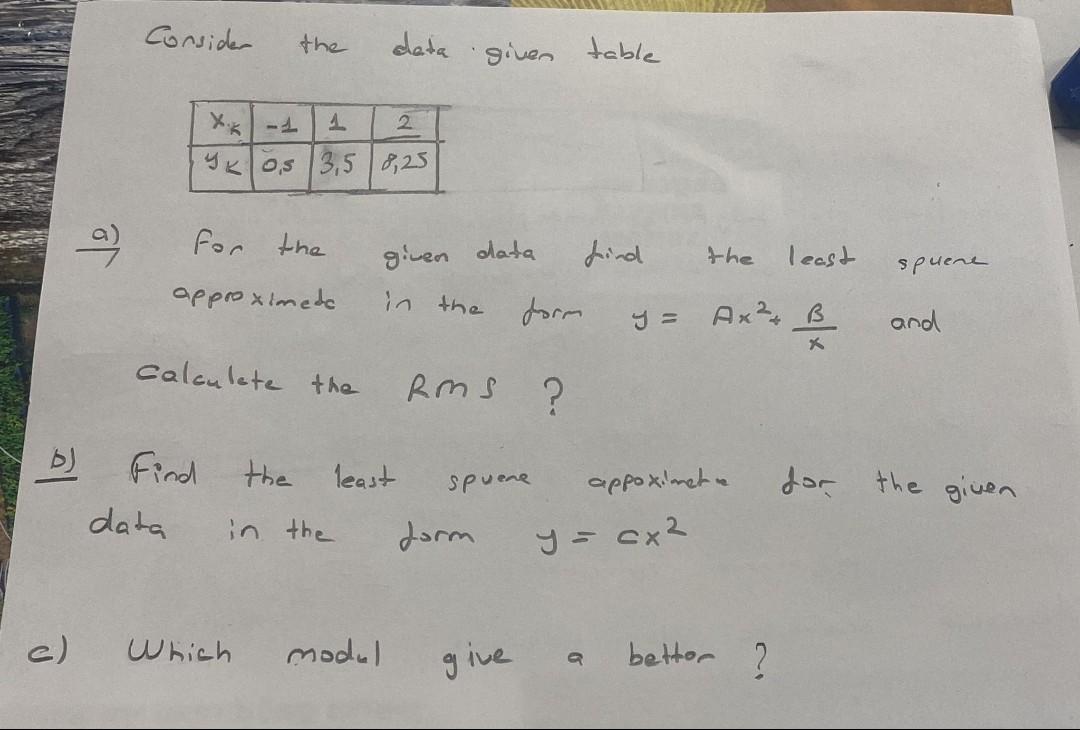 Consider the data given table
xₖ -1 1 2
yₖ 0,5 3,5 8,25
a) For the given data find the least spuere
approximete in the form y = Ax² + B/x and
calculete the RMS ?
b) Find the least spuere appoximete for the given
data in the form y = cx²
c) Which modul give a better ?